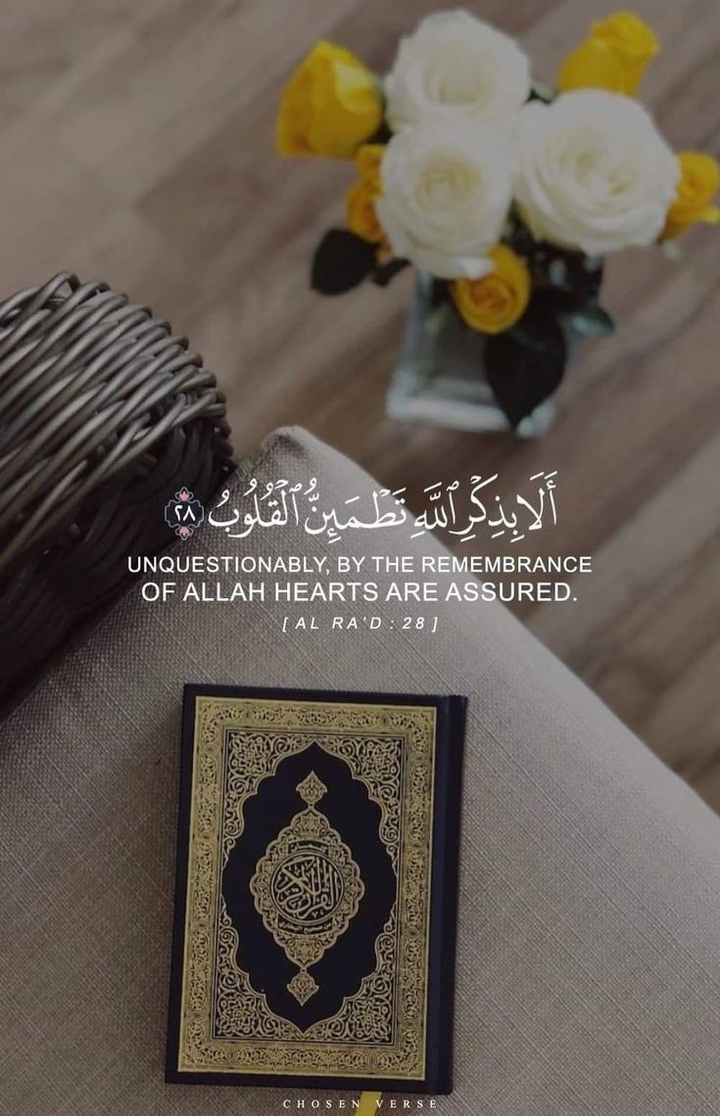 أَلَا بِذِكْرِ ٱللَّهِ تَطْمَئِنُّ ٱلْقُلُوبُ ٢٨
UNQUESTIONABLY, BY THE REMEMBRANCE
OF ALLAH HEARTS ARE ASSURED.
[ AL RA'D : 28 ]
القرآن الكريم
CHOSEN VERSE